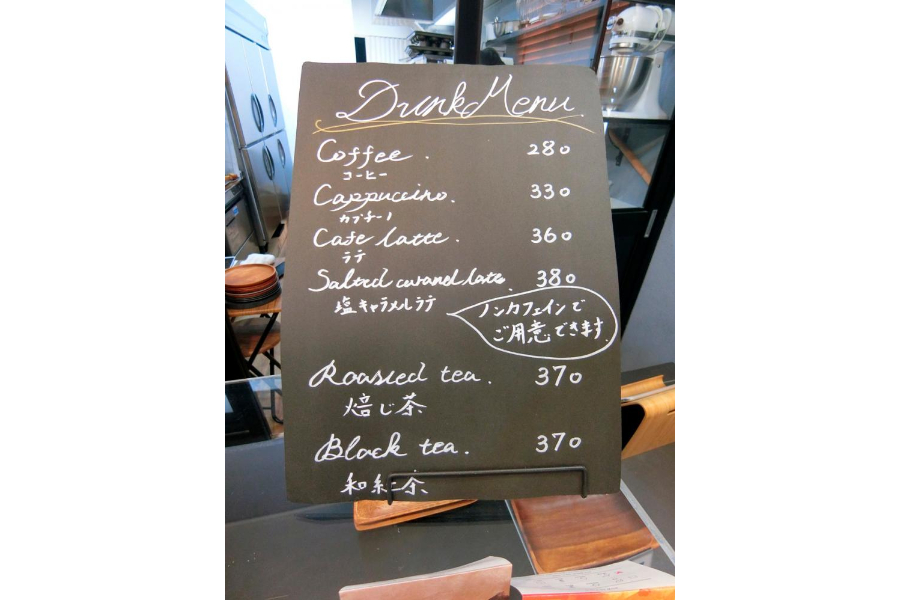 Drink Menu
Coffee. 280
コーヒー
Cappuccino. 330
カプチーノ
Cafe latte. 360
ラテ
Salted caramel latte. 380
塩キャラメルラテ
ノンカフェインで
ご用意できます
Roasted tea. 370
焙じ茶
Black tea. 370
和紅茶